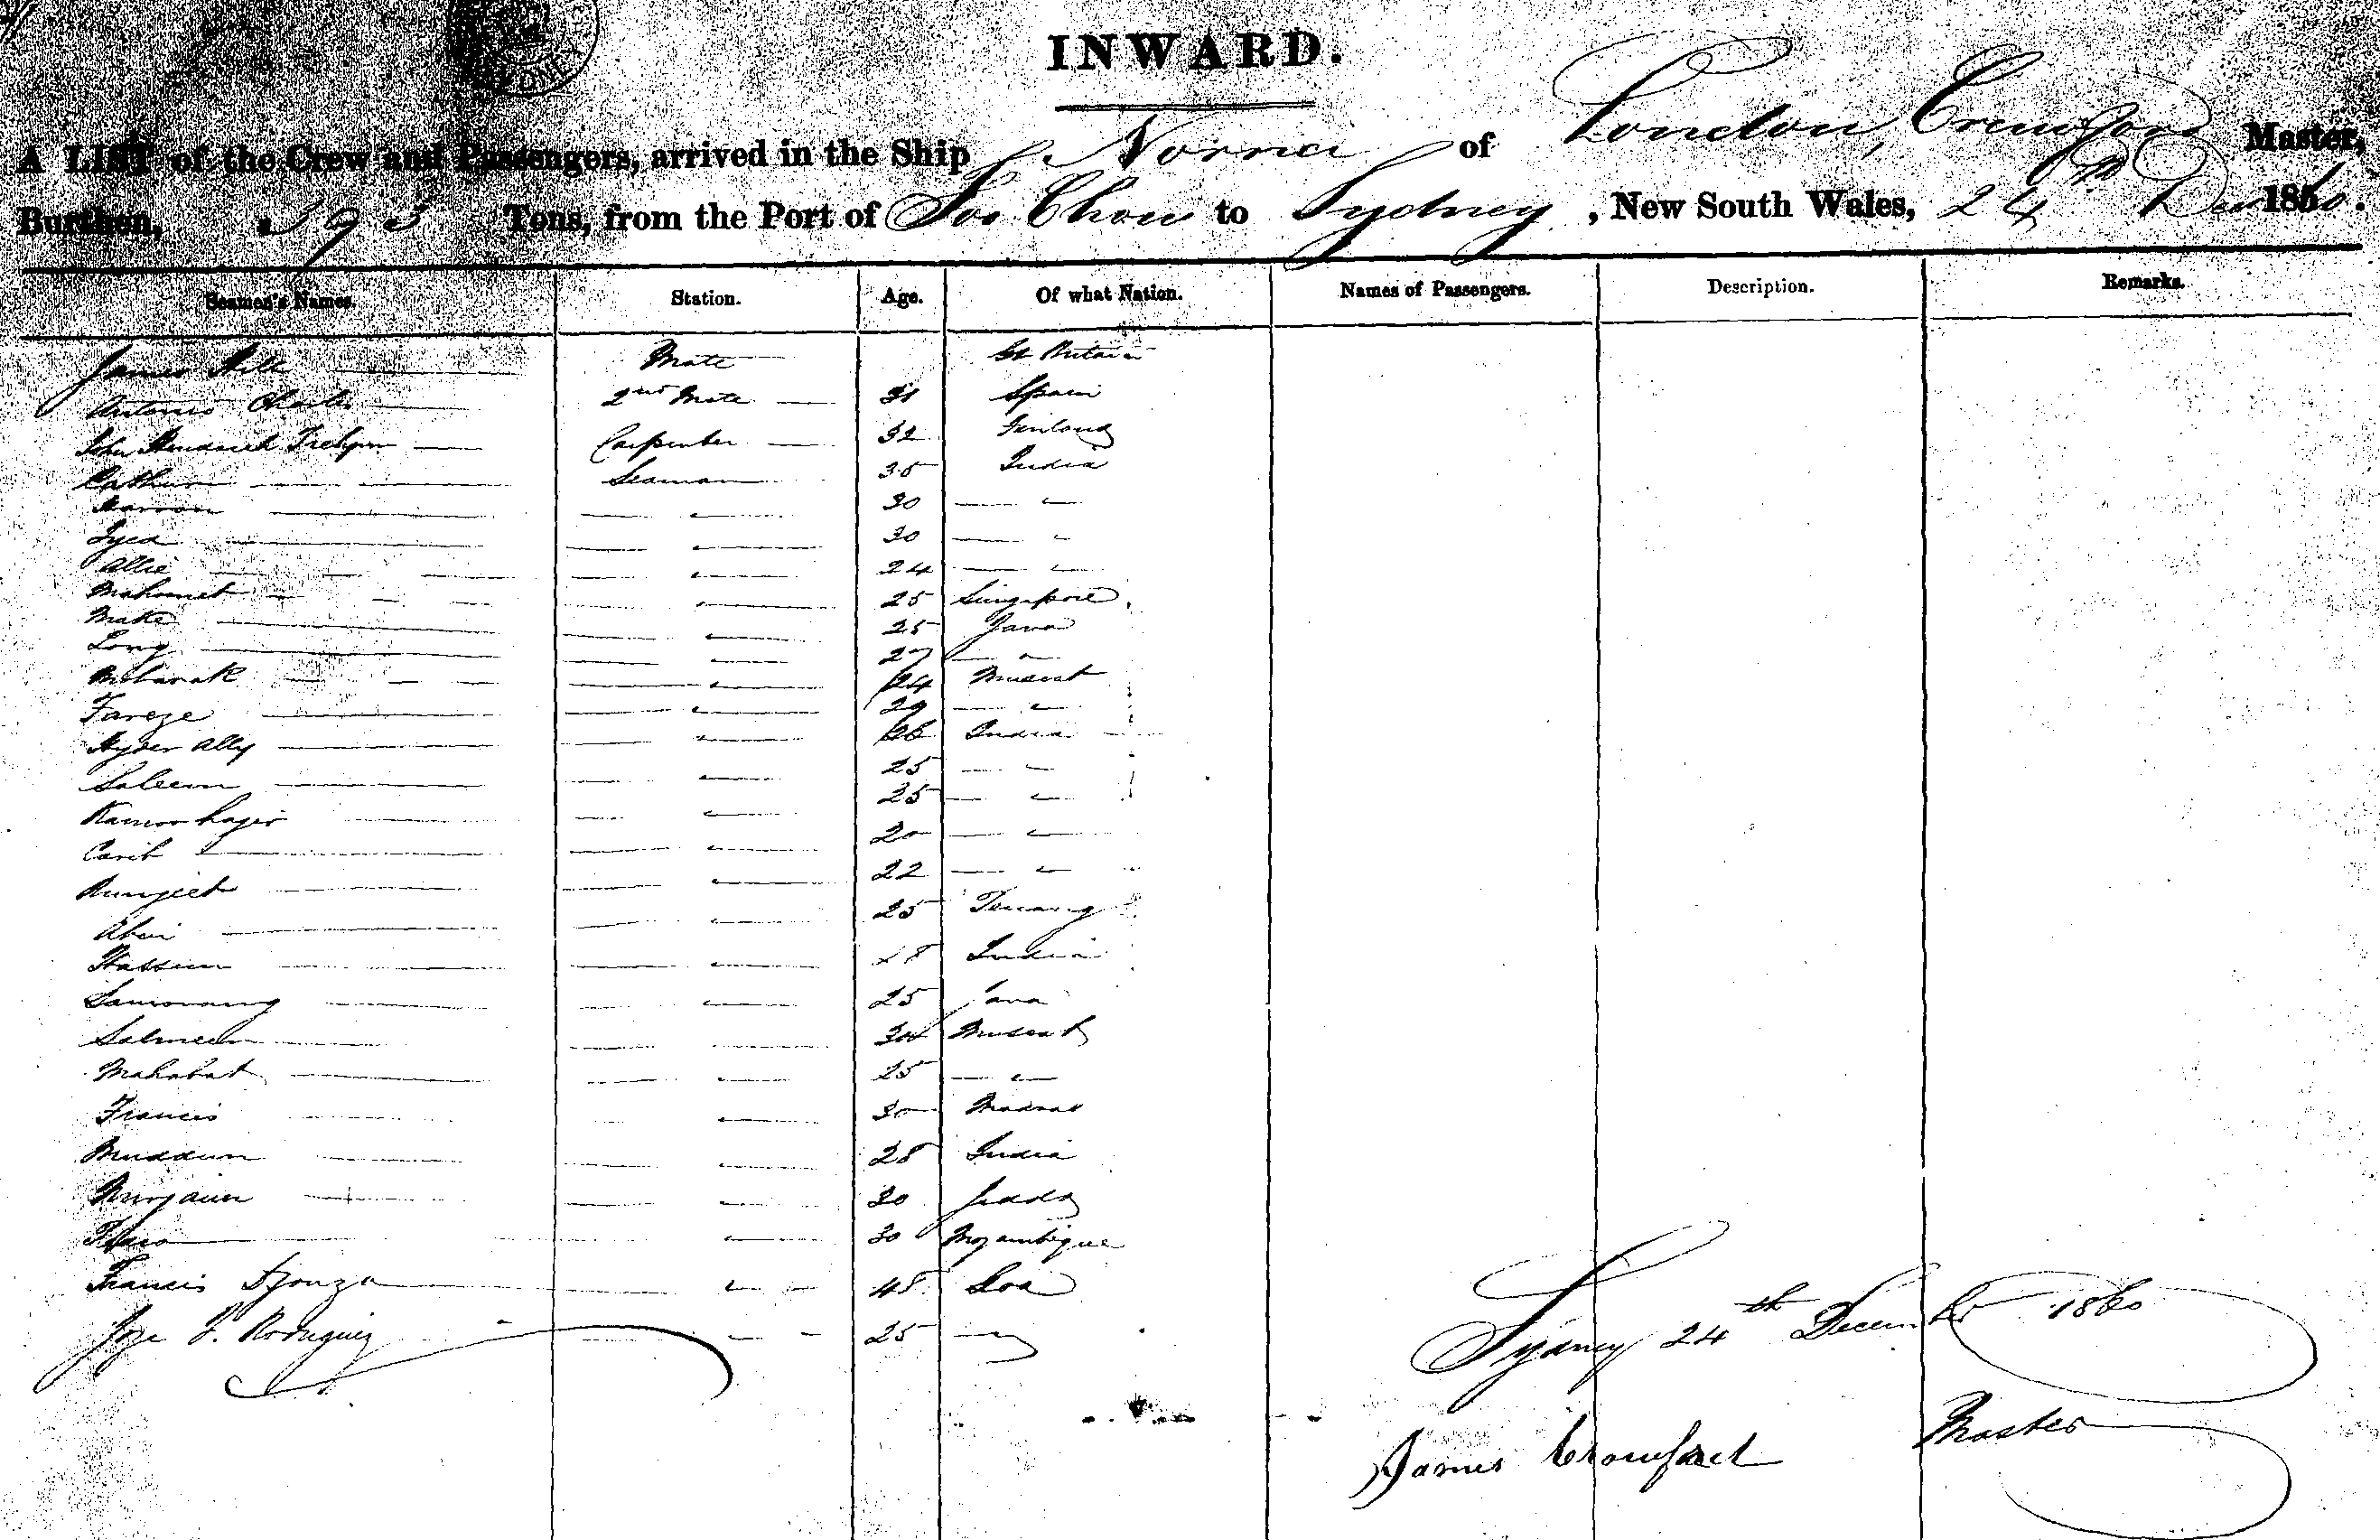 INWARD.
A LIST of the Crew and Passengers, arrived in the Ship Norna of London, Crawford Master,
Burthen, 393 Tons, from the Port of Foo Chow to Sydney, New South Wales, 24th Decr 1860.
Seamen's Names. Station. Age. Of what Nation. Names of Passengers. Description. Remarks.
James Mate Gt Britain
Antonio Charles 2nd Mate 31 Spain
John Carpenter 32 Finland
Seaman 35 India
30 — "
Syed — " 30 — "
Allie — " 24 — "
Mahomet — " 25 Singapore
Make — " 25 Java
Long — " 27 — "
Mubarak — " 24 Muscat
Fareze — " 29 — "
Hyder Ally — " 26 India
Saleem — " 25 — "
— " 25 — "
Carib — " 20 — "
Runjeet — " 22 — "
— " 25 Penang
Hassein — " 18 India
Samonang — " 25 Java
Salmeen — " 30 Muscat
Mahabat — " 25 — "
Francis — " 30 Madras
Muddun — " 28 India
— " 30 Judda
— " 30 Mozambique
Francis Dzouza — " 45 Goa
Joze P. Rodriguez — " 25 — "
Sydney 24th December 1860
James Crawford Master